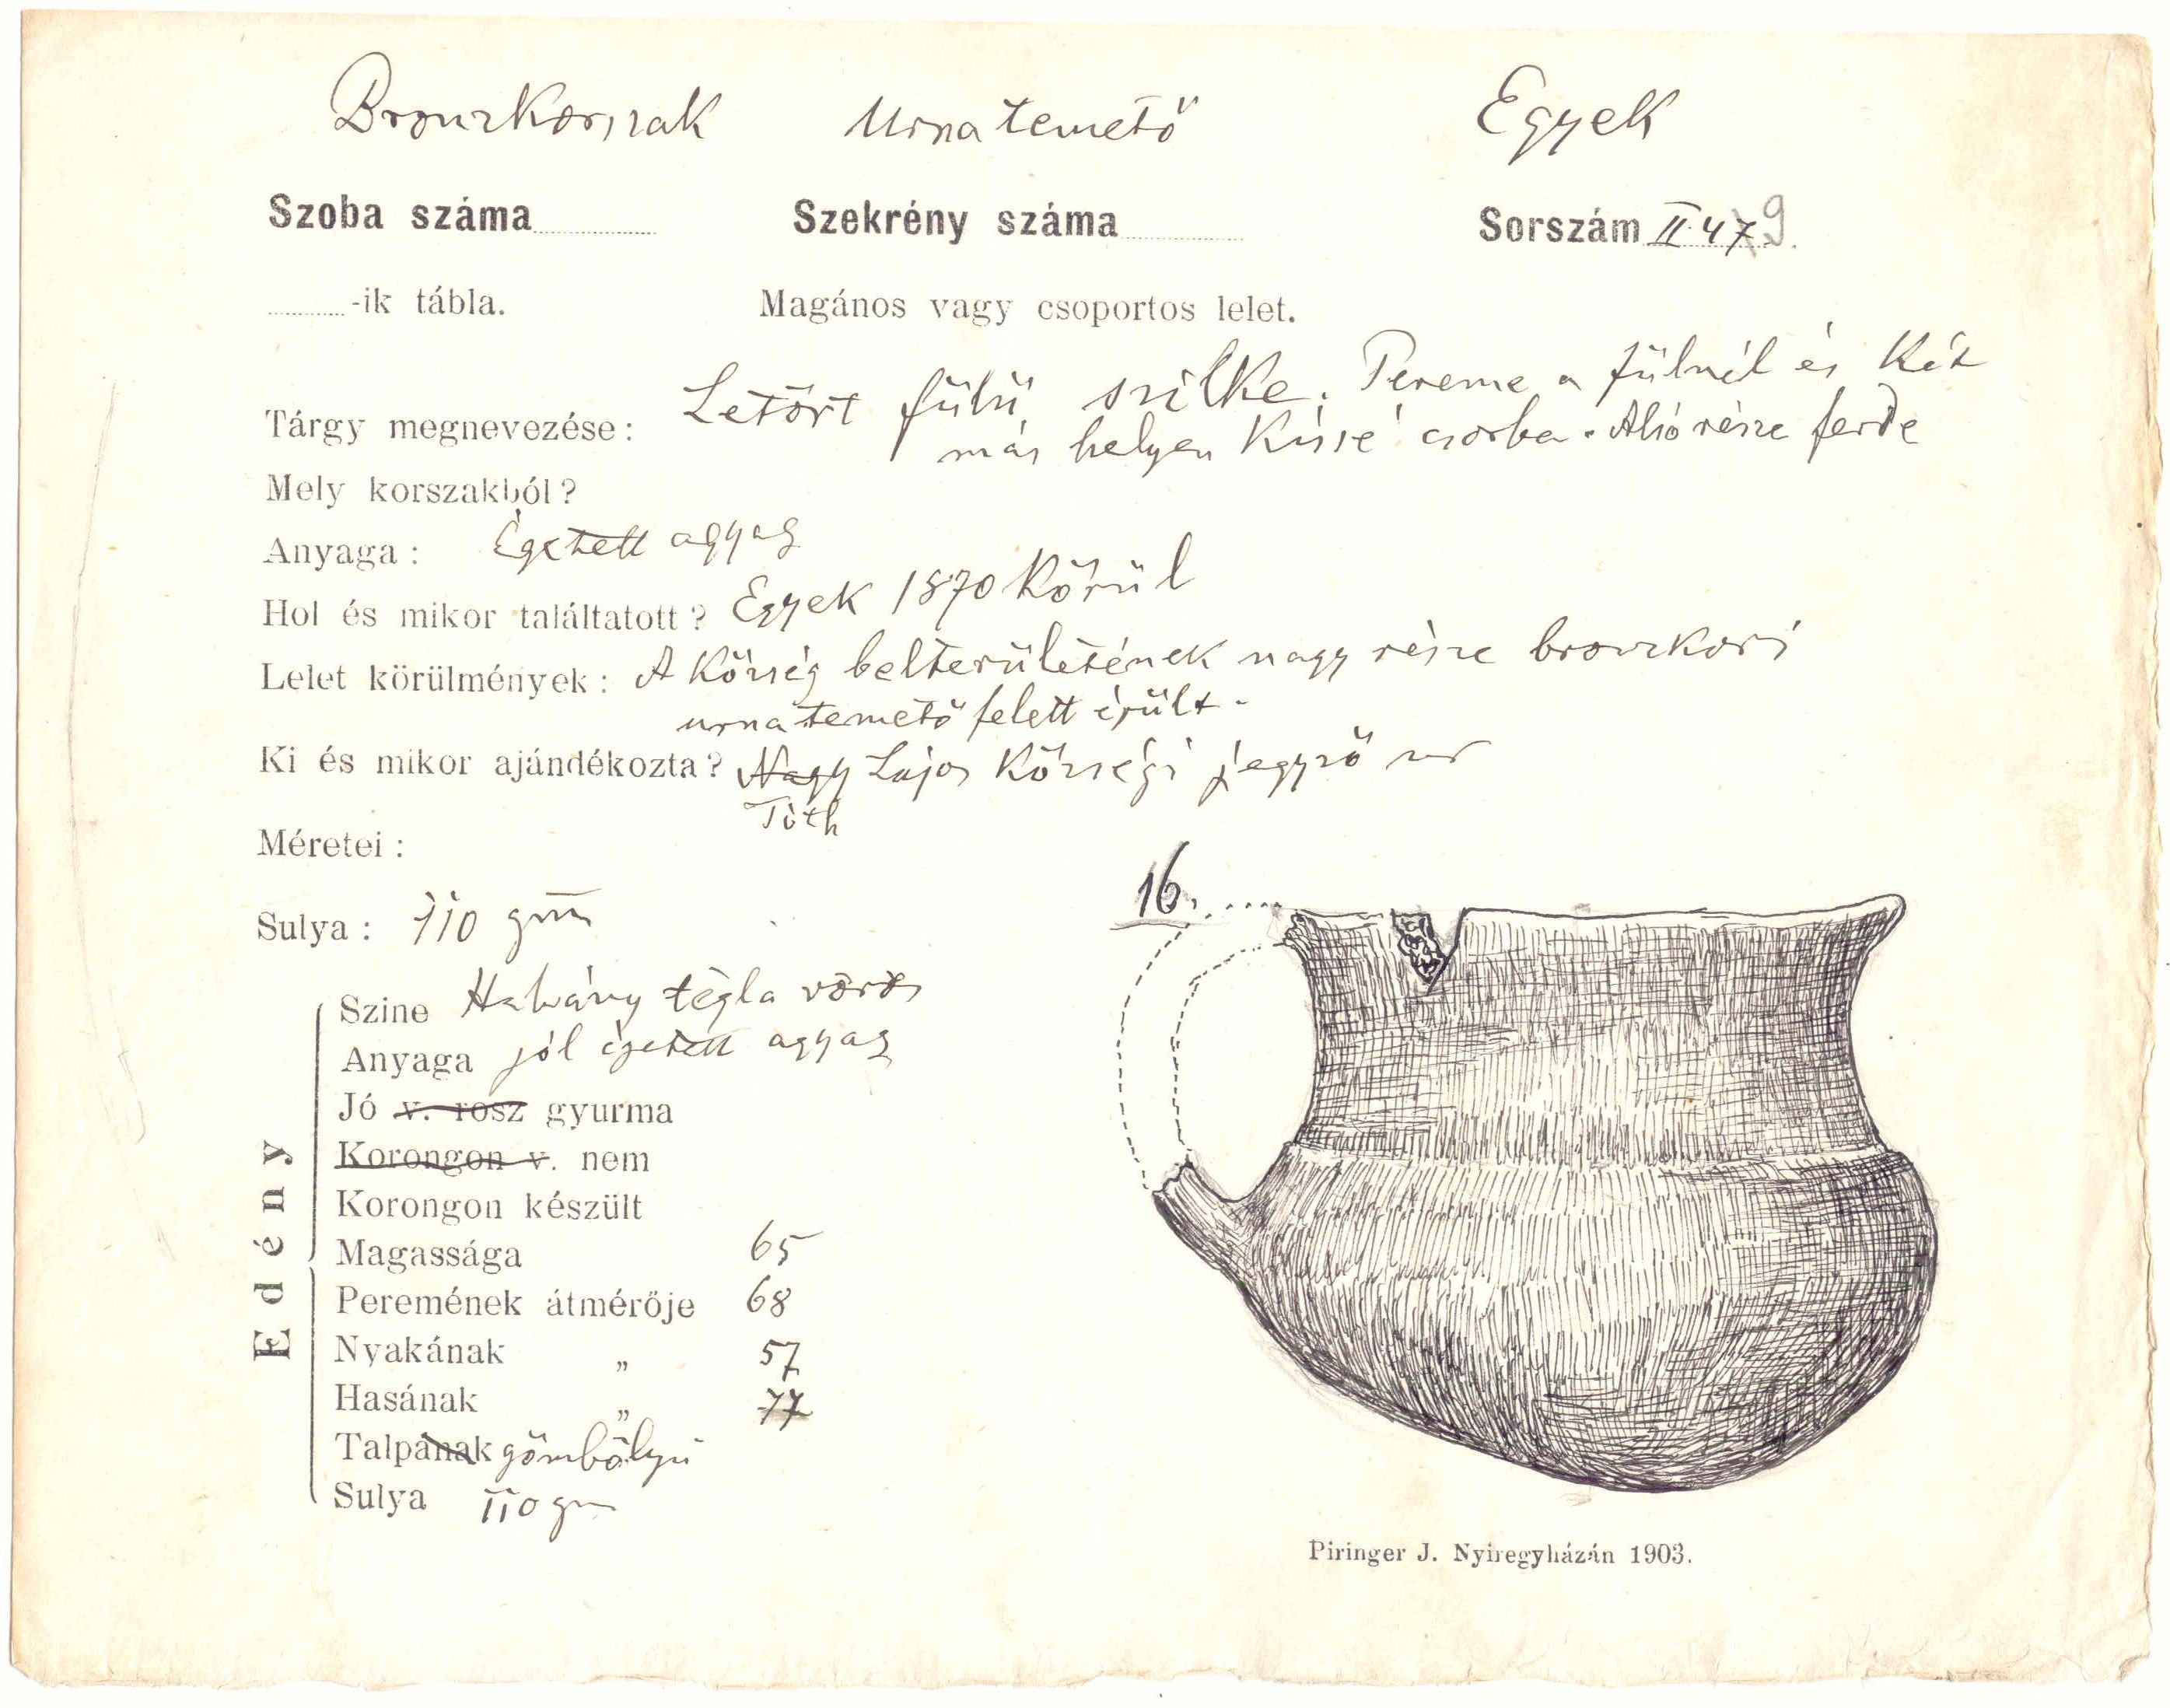 Bronzkorszak Urnatemető Egyek
Szoba száma Szekrény száma Sorszám II.479.
-ik tábla. Magános vagy csoportos lelet.
Tárgy megnevezése: Letört fülü szilke. Pereme a fülnél és két
más helyen kissé csorba. Alsó része ferde
Mely korszakból?
Anyaga: Égetett agyag
Hol és mikor találtatott? Egyek 1870 körül
Lelet körülmények: A község belterületének nagy része bronzkori
urnatemető felett épült.
Ki és mikor ajándékozta? Nagy Lajos községi jegyző ur
Tóth
Méretei:
Sulya: 110 gm
16.
Edény
Szine Halvány tégla vörös
Anyaga jól égetett agyag
Jó v. rosz gyurma
Korongon v. nem
Korongon készült
Magassága 65
Peremének átmérője 68
Nyakának „ 57
Hasának „ 77
Talpának gömbölyü
Sulya 110 gm
Piringer J. Nyiregyházán 1903.